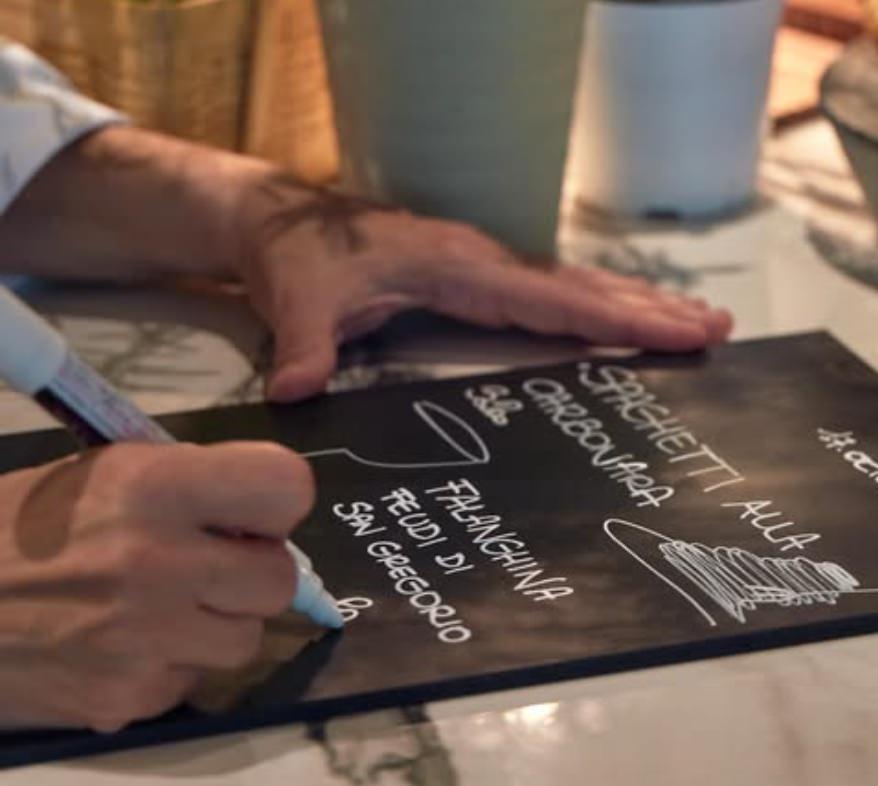 17.
SPAGHETTI ALLA
CARBONARA
FALANGHINA
FEUDI DI
SAN GREGORIO